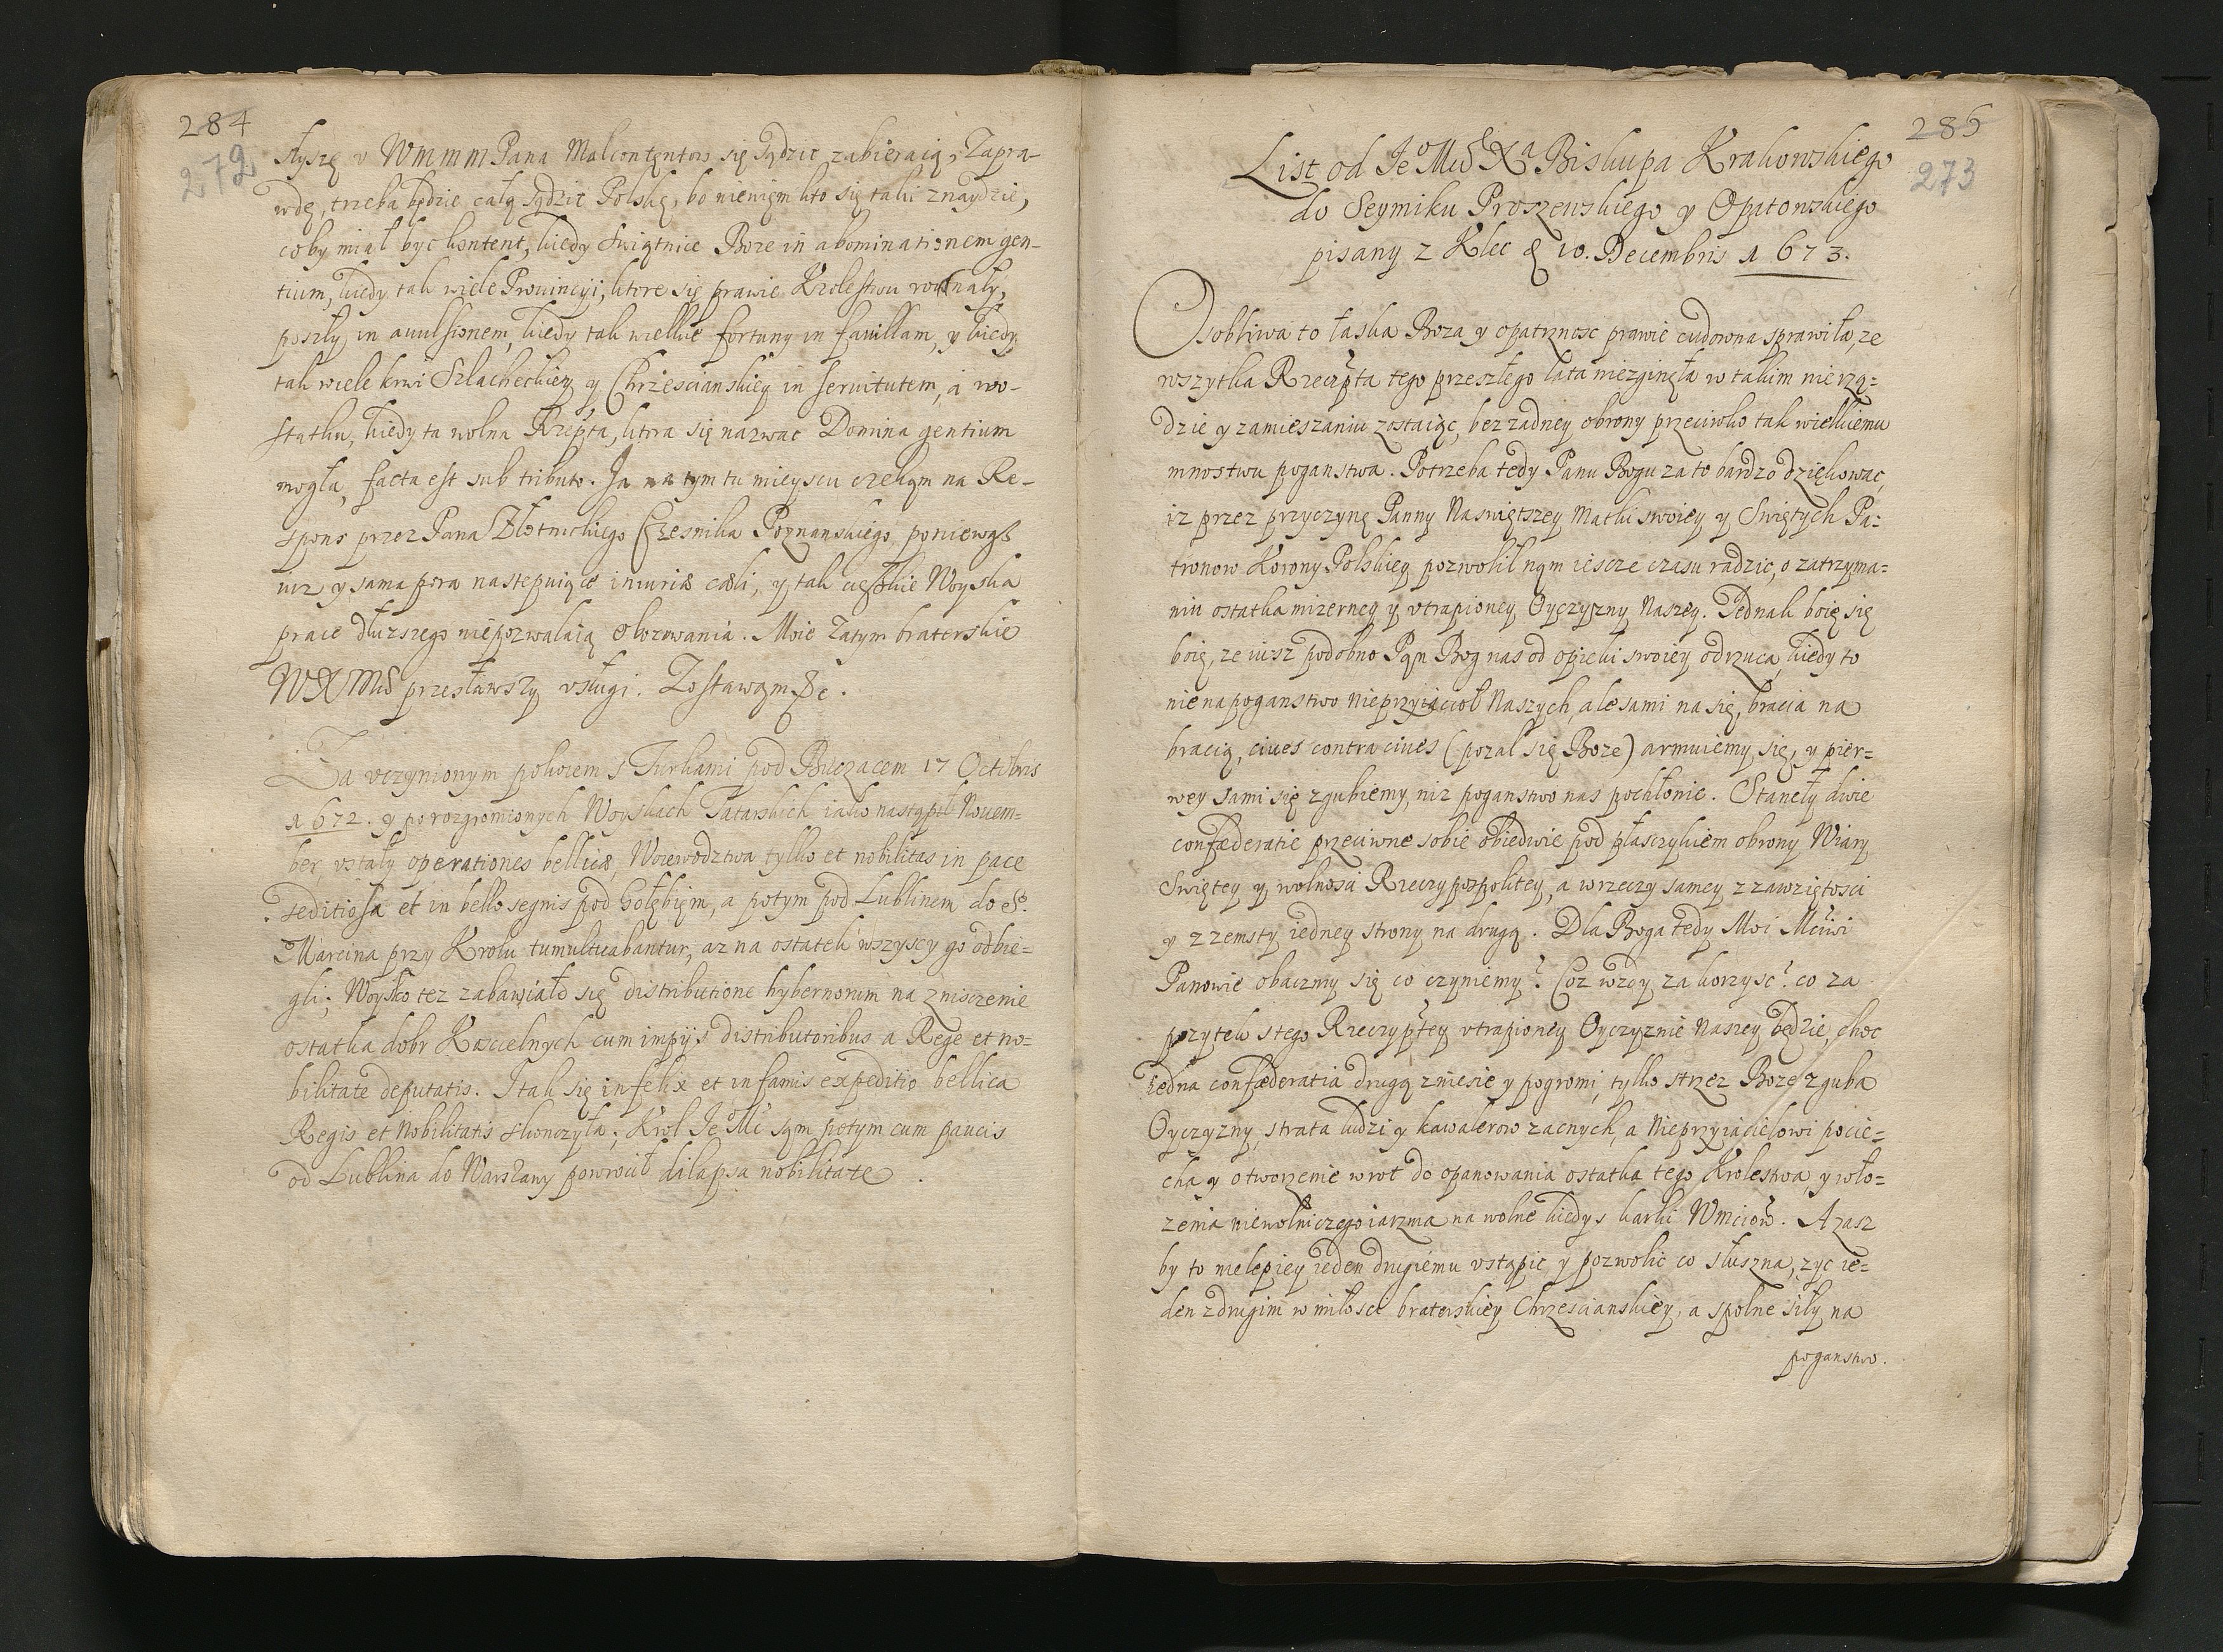 284
272
słyszę v WmmmPana Malcontentow się sądzic zabieraią, Zapra-
wdę, trzeba będzie całą sądzic Polskę, bo niewięm kto się taki znaydzie,
coby miał byc kontent, kiedy Swiątnice Boze in abominationem gen-
tium, kiedy tak wiele Prouincyi, ktore się prawie Krolestwu rownały,
poszły in auulsionem, kiedy tak wielkie fortuny in fauillam, y kiedy
tak wiele krwi Szlacheckiey y Chrzescianskiey in seruitutem, a wo-
statku, kiedy ta wolna Rzepta, ktora się nazwac Domina gentium
mogła, facta est sub tributo. Ja na tym tu mieyscu czekąm na Re-
spons przez Pana Złotnickiego Czesnika Poznanskiego, poniewąsz
iuz y sama pora nastepuiące iniuriæ cæli, y tak cięszkie Woyska
prace dłuzszego niepozwalaią oboz­owania. Moie zatym braterskie
WXMć przesławszy vsługi. Zostawąm &c.
Za vczynionym pokoiem s Turkami pod Buczaczem 17 Octobris
1672. y po rozgromionych Woyskach Tatarskich iako nastąpił Nouem-
ber, vstały operationes bellicæ, Woiewodztwa tylko et nobilitas in pace
seditiosa et in bello segnis pod Gołębiem, a potym pod Lublinem do S.
Marcina przy Krolu tumultuabantur, az na ostatek wszyscy go odbie-
gli; Woysko tez zabawiało się distributione hybernorum na zniszczenie
ostatka dobr Koscielnych cum impijs distributoribus a Rege et no-
bilitate deputatis. I tak się infelix et infamis expeditio bellica
Regis et Nobilitatis skonczyła; Krol Je Mć sąm potym cum paucis
od Lublina do Warszawy powrocił dilapsa nobilitate.
285
273
List od Jeo Mci Xa Biskupa Krakowskiego
do Seymiku Proszewskiego y Opatowskiego
pisany z Kielc d 10. Decembris 1673.
Osobliwa to łaska Boza y opatrznosc prawie cudowna sprawiła, ze
wszytka Rzeczpta tego przeszłego lata niezginęła w takim nierzą-
dzie y zamieszaniu zostaiąc, bez zadney obrony przeciwko tak wielkiemu
mnostwu poganstwa. Potrzeba tedy Panu Bogu za to bardzo dziękowac,
iz przez przyczynę Panny Naswiętszey Matki swoiey y Swiętych Pa-
tronow Korony Polskiey pozwolił nąm iescze czasu radzic, o zatrzyma-
niu ostatka mizerney y vtrapioney Oyczyzny Naszey. Jednak boię się
boię, ze iusz podobno Pąn Bog nas od opieki swoiey odrzuca, kiedy to
nie na poganstwo nieprzyiacioł Naszych, ale sami na się, bracia na
bracią, ciues contra ciues (pozal się Boze) armuiemy się, y pier-
wey sami się zgubiemy, niz poganstwo nas pochłonie. Staneły dwie
confæderatie przeciwne sobie obiedwie pod płasczykiem obrony Wiary
Swiętey y wolnosci Rzeczypospolitey, a w rzeczy samey z zawziętosci
y z zemsty iedney strony na drugą. Dla Boga tedy Moi Mciwi
Panowie obaczmy się co czyniemy? Coz wzdy za korzysc? co za
pozytek stego Rzeczyptey vtrapioney Oyczyznie Naszey będzie, choc
iedna confæderatia drugą zniesie y pogromi, tylko strzez Boze zguba
Oyczyzny, strata ludzi y kawalerow zacnych, a Nieprzyiacielowi pocie-
cha y otworzenie wrot do opanowania ostatka tego Krolestwa, y wło-
zenia niewolniczego iarzma na wolne kiedys karki Wmciow. Azasz
by to nielepiey ieden drugiemu vstąpic y pozwolic co słuszna, zyc ie-
den z drugim w miłosci braterskiey Chrzescianskiey, a spolne siły na
poganstwo.